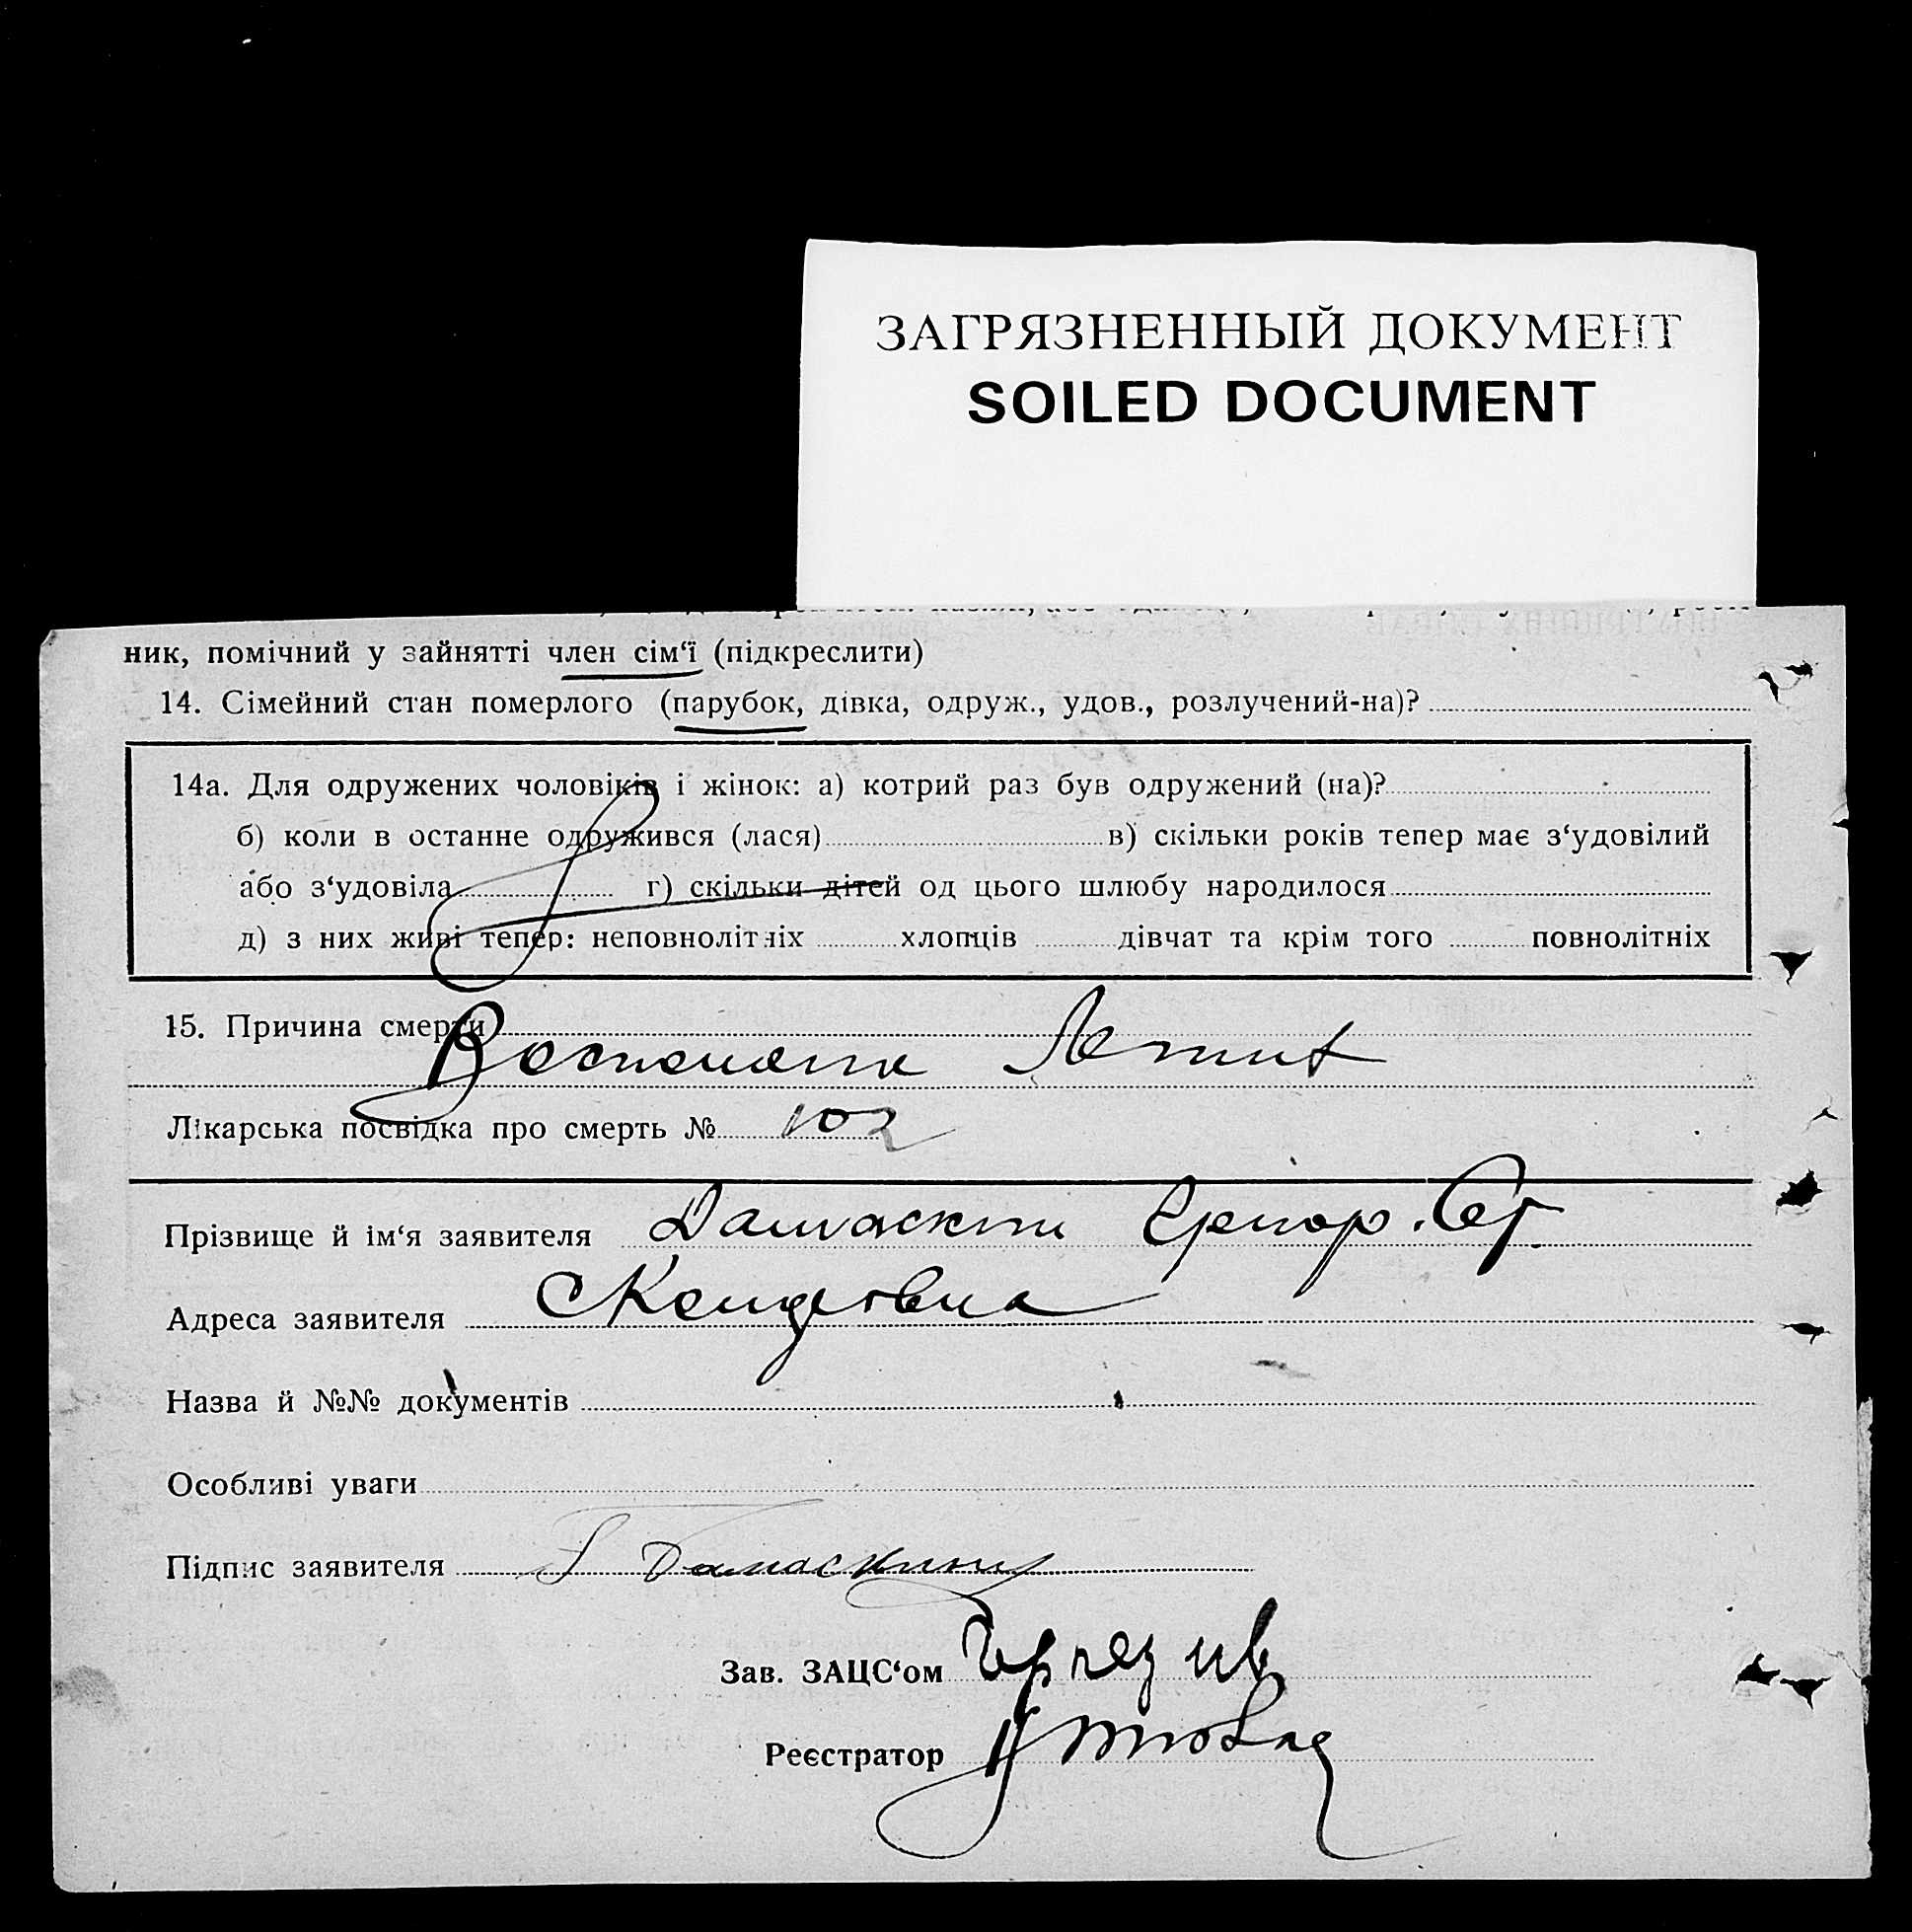 ЗАГРЯЗНЕННЫЙ ДОКУМЕНТ
SOILED DOCUMENT
ник, помічний у зайнятті член сім‘ї (підкреслити)
14. Сімейний стан померлого (парубок, дівка, одруж., удов., розлучений-на)?
14а. Для одружених чоловіків і жінок: а) котрий раз був одружений (на)?
б) коли в останне одружився (лася) в) скільки років тепер має з‘удовілий
або з‘удовіла г) скільки дітей од цього шлюбу народилося
д) з них живі тепер: неповнолітніх хлопців дівчат та крім того повнолітніх
15. Причина смерти
Воспаление
Лікарська посвідка про смерть № 102
Прізвище й ім‘я заявителя Дамаскин Григор.
Адреса заявителя
Назва й №№ документів
Особливі уваги
Підпис заявителя Г Дамаскини
Зав. ЗАЦС‘ом
Реєстратор